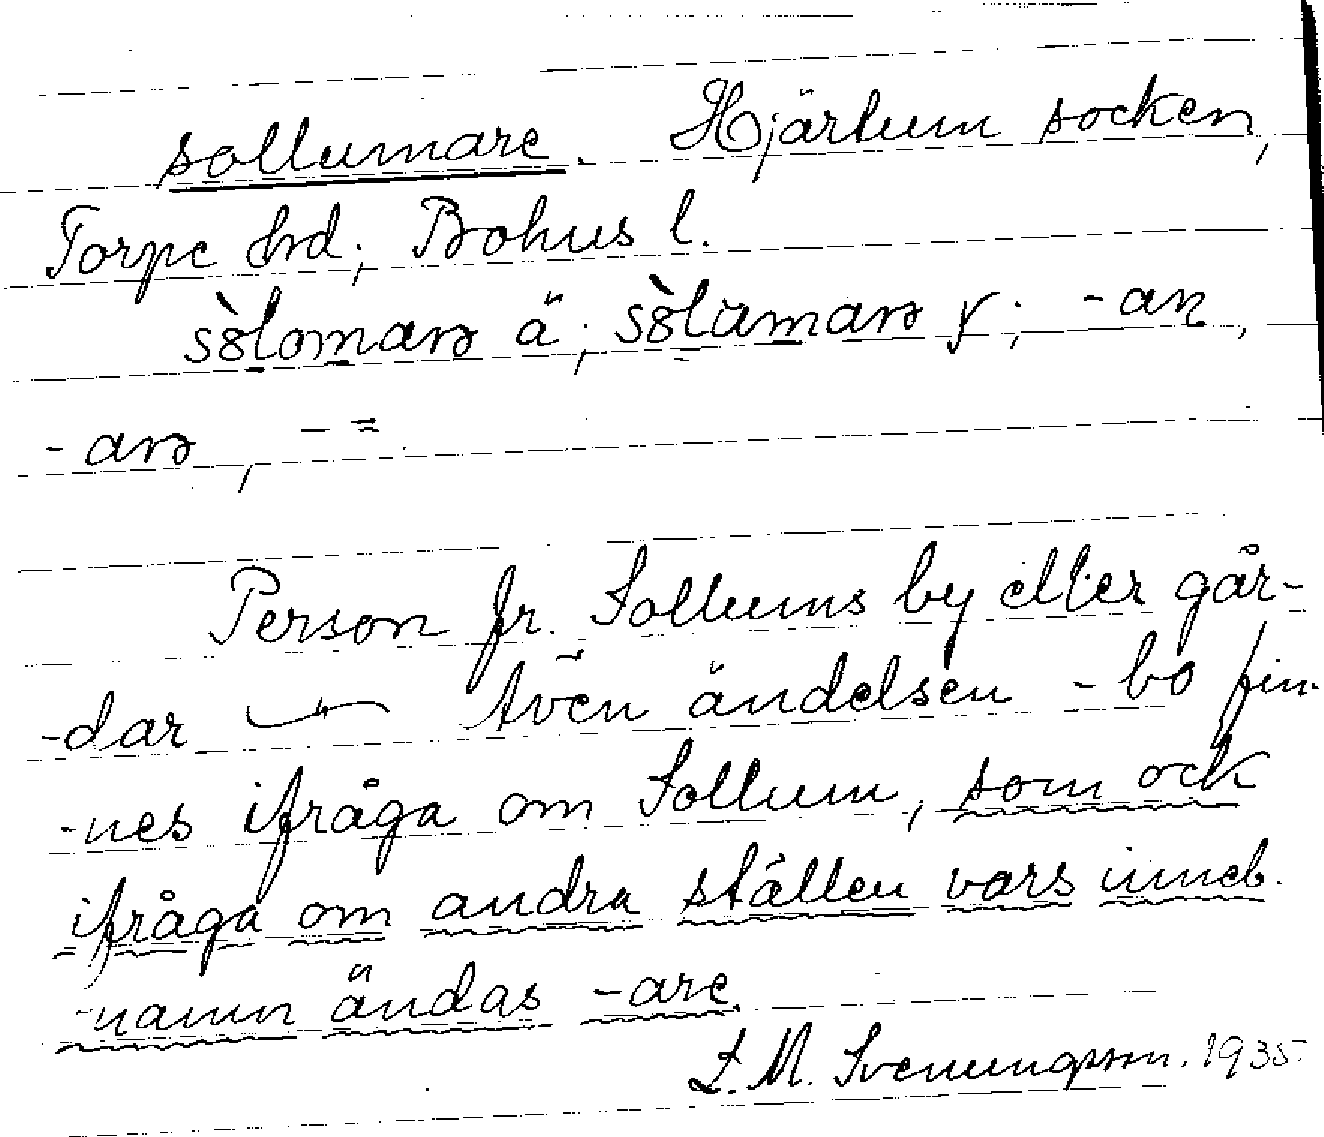 sollumare. Hjärtum socken,
Torpe hd; Bohus l.
sòlomarə ä; sòlamarə y; -an,
-arə, - =
Person fr. Sollums by eller går-
-dar — Även ändelsen -bo fin-
-nes ifråga om Sollum, som ock
ifråga om andra ställen vars inneb.
-namn ändas -are.
L. M. Svenungsson. 1935.